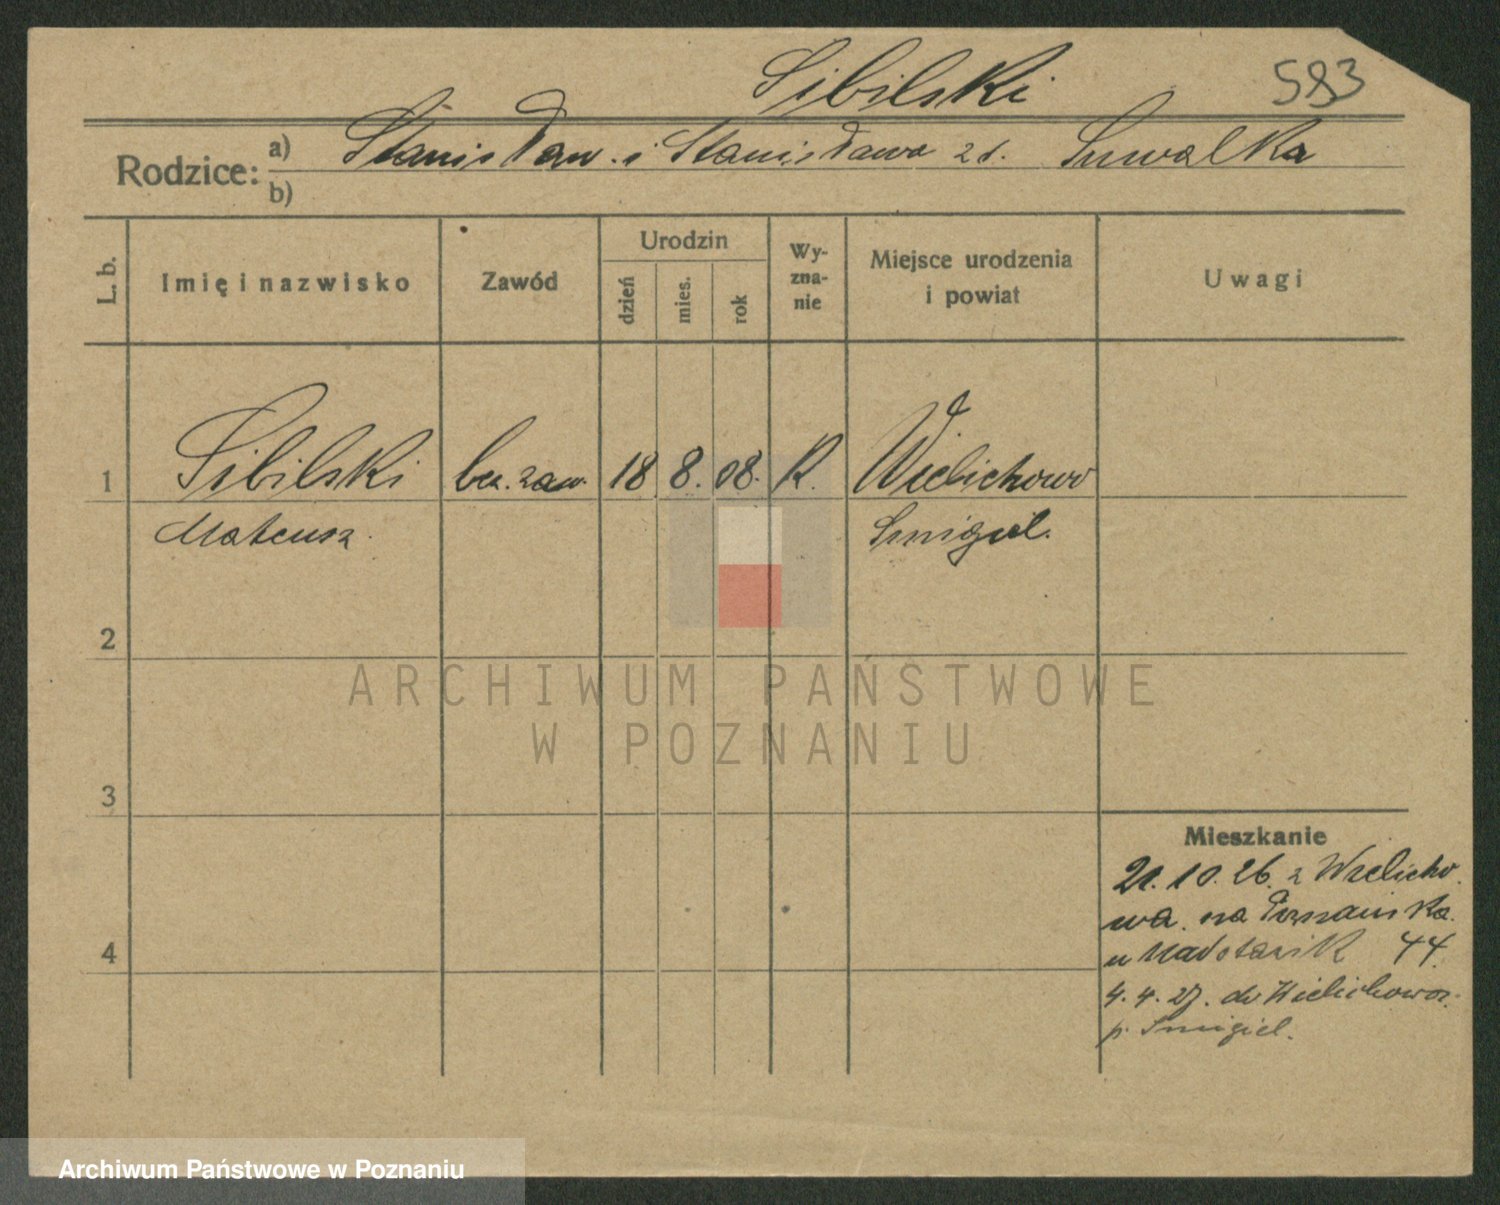 Sibilski 593
Rodzice: a) Stanisław i Stanisława zd. Suwalka
b)
L. b.
Imię i nazwisko
Zawód
Urodzin
dzień
mies.
rok
Wy-
zna-
nie
Miejsce urodzenia
i powiat
Uwagi
1 Sibilski bez. zaw. 18 8. 08. R. Wielichowo
Mateusz. Smigiel.
2
3
4
ARCHIWUM PAŃSTWOWE
W POZNANIU
Mieszkanie
21. 10. 26. z Wielicho
wa. na Poznańska.
u 44.
4. 4. 27. do Wielichowa.
p. Smigiel.
Archiwum Państwowe w Poznaniu